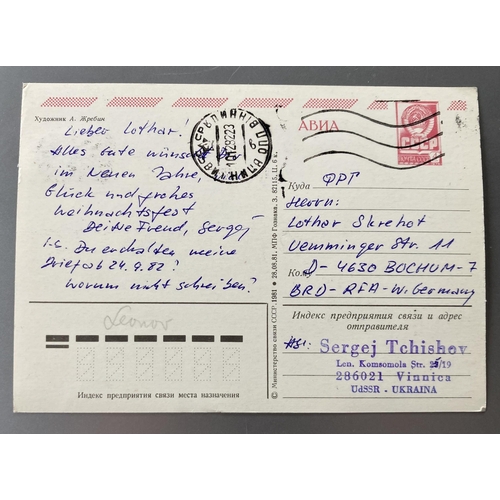 Художник А. Жребин
Lieber Lothar.
Alles Gute wünsche
im Neuen Jahre,
Glück und frohes
Weihnachtsfest
Deine Freund, Sergej
Du erhalten meine
Brief ab 24.9.82?
Worum nicht schreiben?
Leonov
Индекс предприятия связи места назначения
© Министерство связи СССР. 1981 ★ 28.08.81. МПФ Гознака. З. 82115. Ц. 6 к.
АВИА
Куда ФРГ
Herrn:
Lothar Skrehot
Uemminger Str. 11
Кому D-4630 BOCHUM-7
BRD-RFA-W. Germany
Индекс предприятия связи и адрес
отправителя
Sergej Tchishov
Len. Komsomola Str. /19
286021 Vinnica
UdSSR - UKRAINA